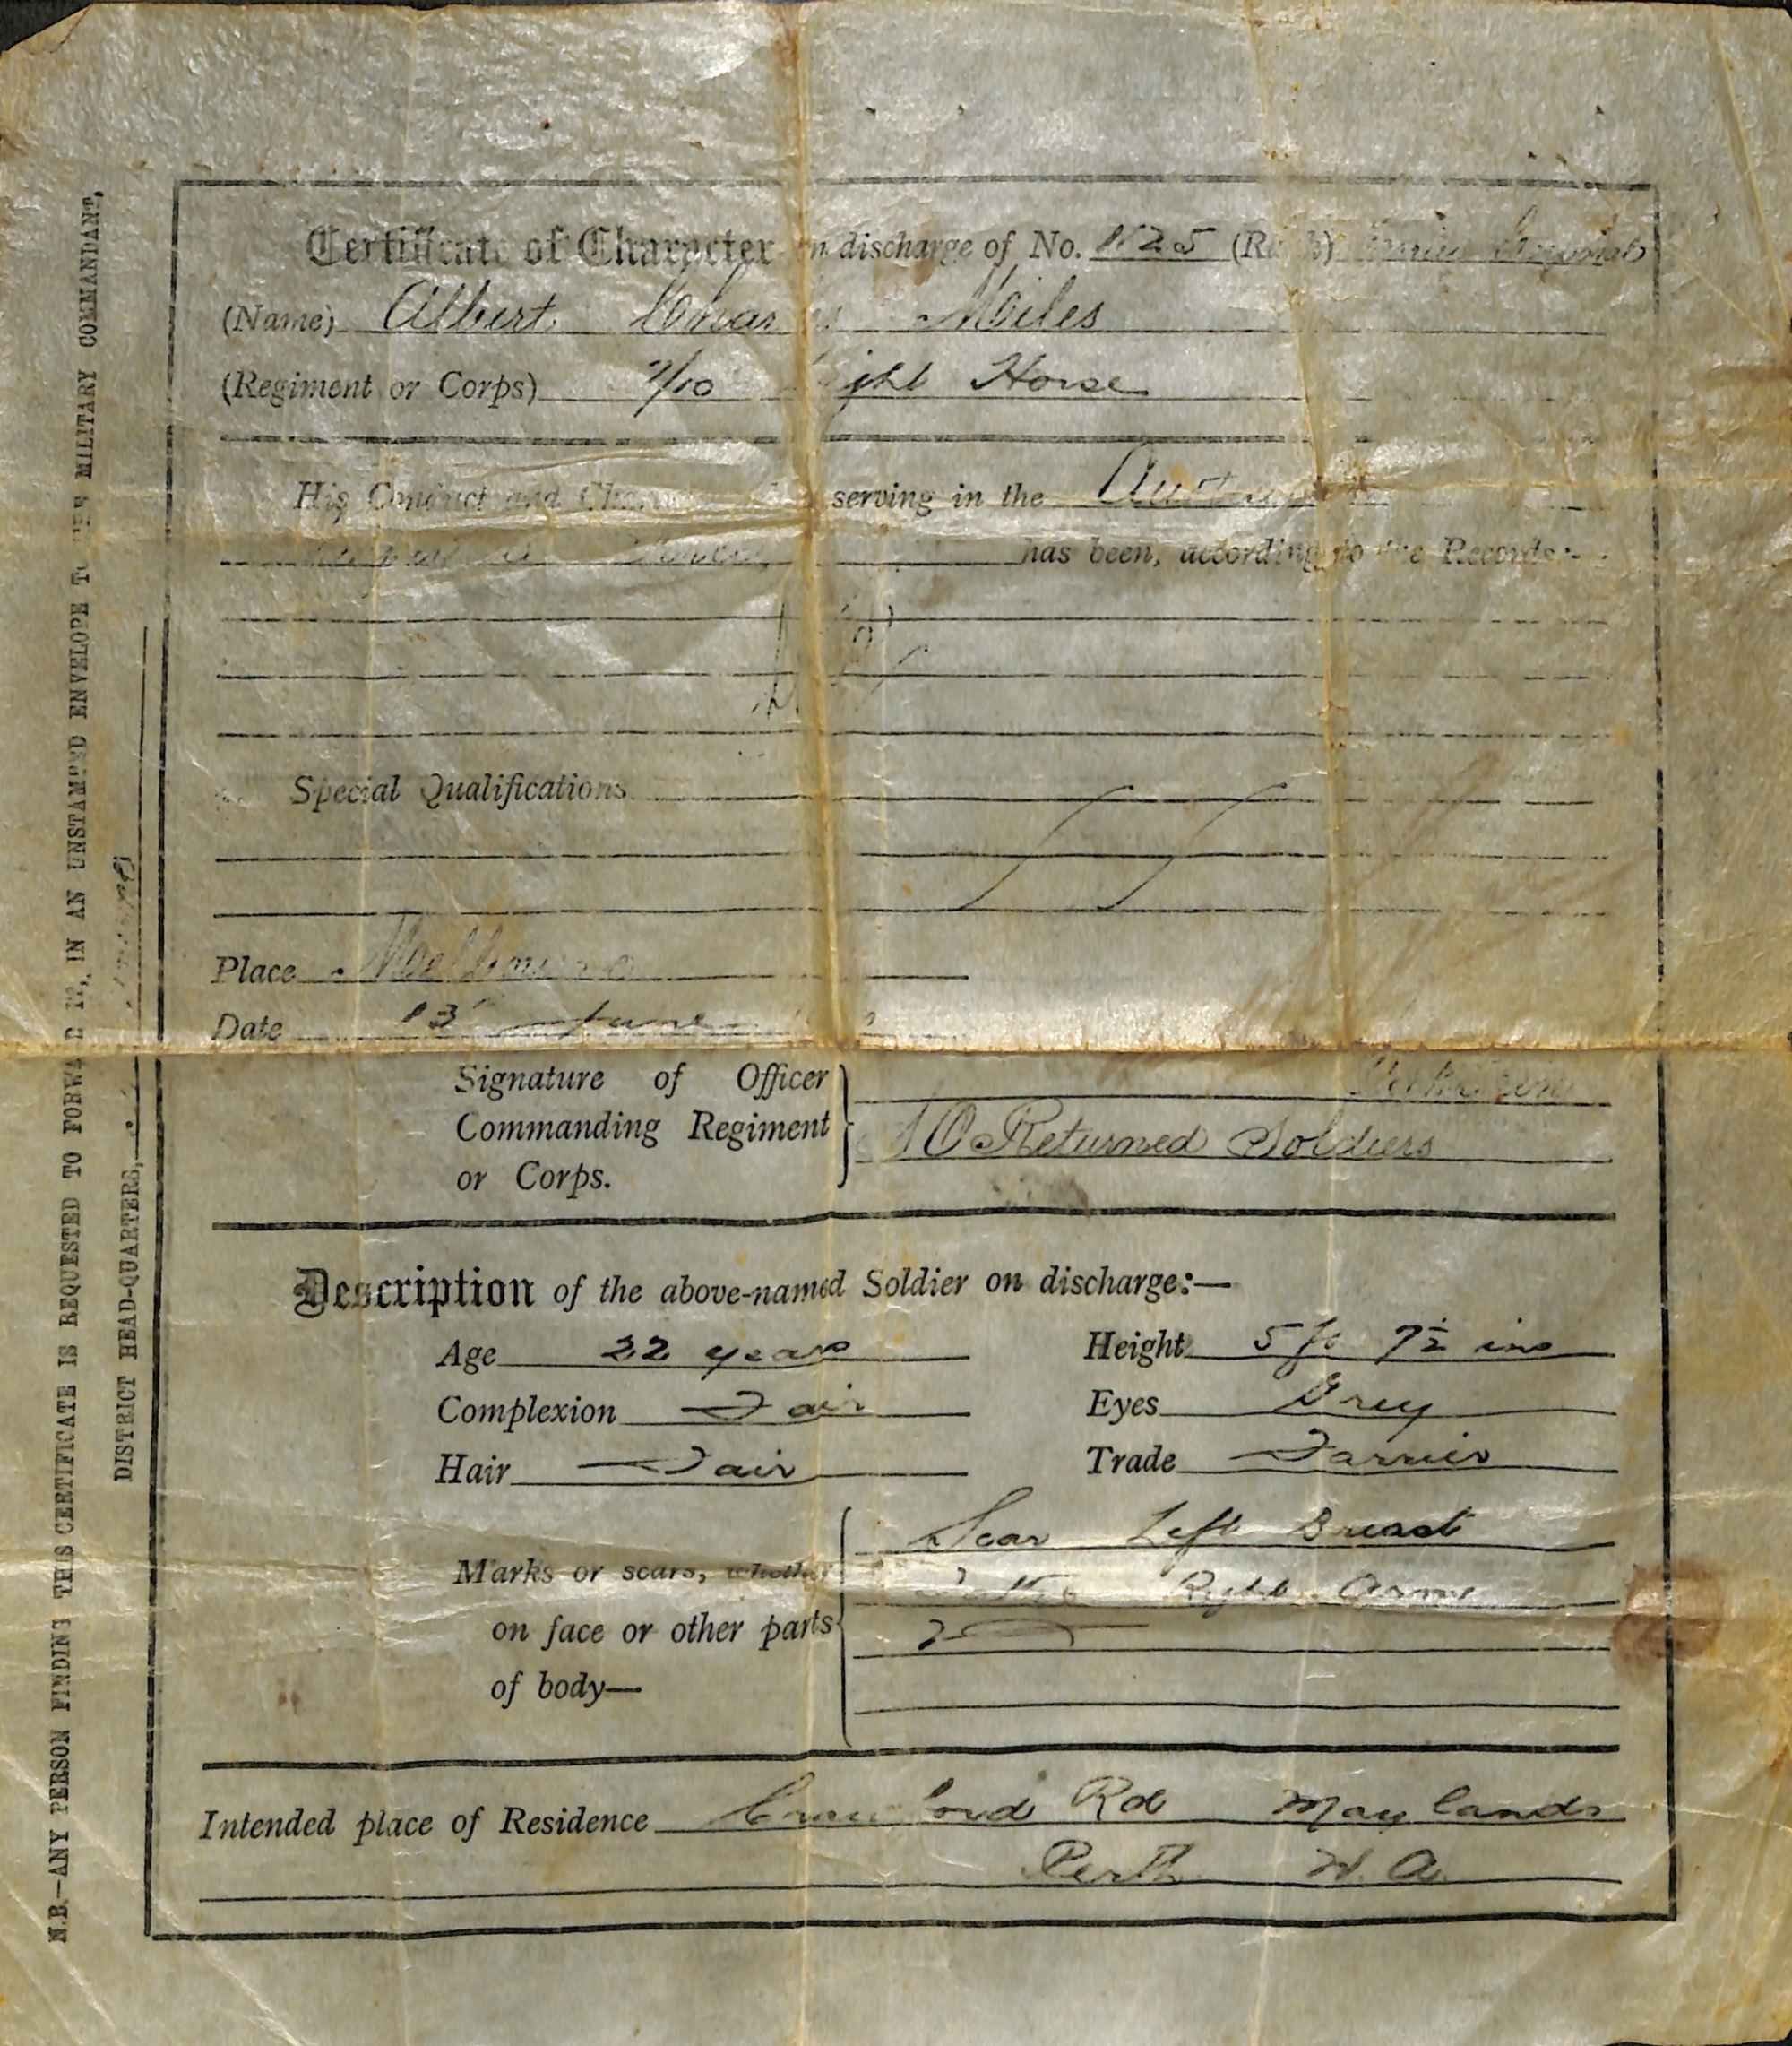 Certificate of Character on discharge of No. 1125 (Rank)
(Name) Albert Charles Miles
(Regiment or Corps) 7/10 Light Horse
His Conduct and Character while serving in the
has been, according to the Records:-
Special Qualifications
Place Melbourne
Date 13 June
Signature of Officer
Commanding Regiment
or Corps.
OC Returned Soldiers
Description of the above-named Soldier on discharge:—
Age 22 years Height 5 ft 7½ ins
Complexion Fair Eyes Grey
Hair Fair Trade Farrier
Marks or scars, whether
on face or other parts
of body—
Scar Left Breast
Right Arm
Intended place of Residence Crawford Rd Maylands
Perth W.A.
N.B.—ANY PERSON FINDING THIS CERTIFICATE IS REQUESTED TO FORWARD IT, IN AN UNSTAMPED ENVELOPE TO THE MILITARY COMMANDANT,
DISTRICT HEAD-QUARTERS,